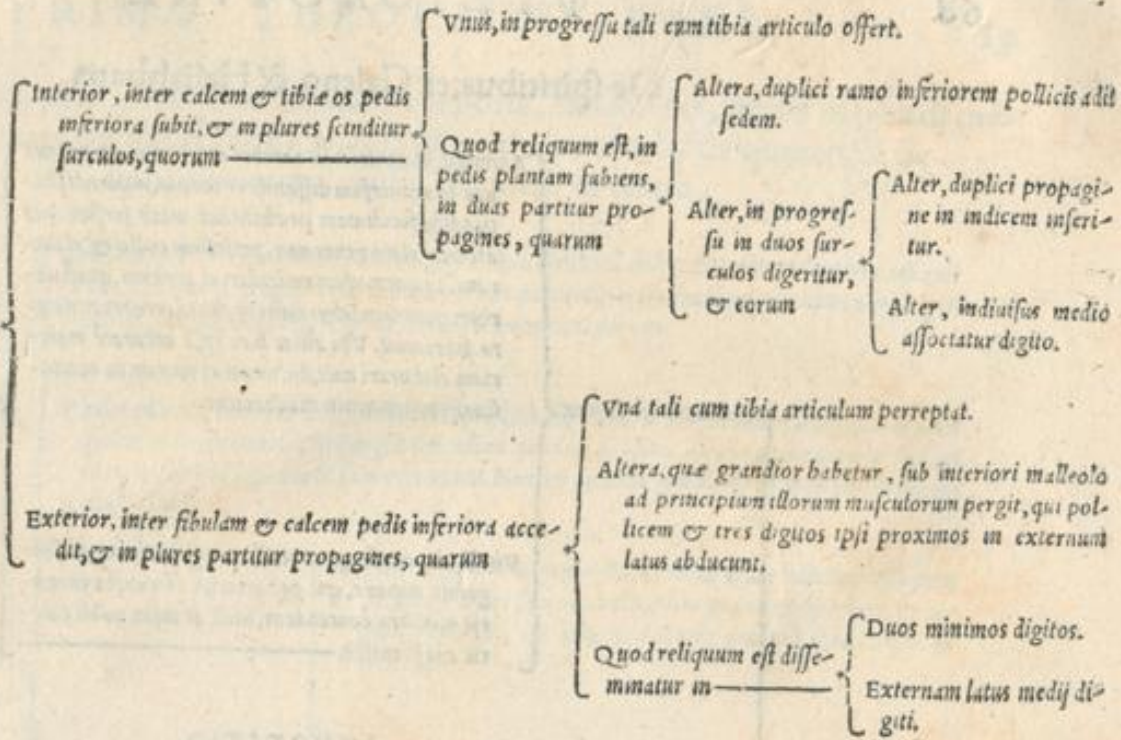 Vnus, in progreſſu tali cum tibia articulo offert.
Interior, inter calcem & tibiæ os pedis
inferiora ſubit, & in plures ſcinditur
ſurculos, quorum
Quod reliquum eſt, in
pedis plantam ſubiens,
in duas partitur pro-
pagines, quarum
Altera, duplici ramo inferiorem pollicis adit
ſedem.
Alter, in progreſ-
ſu in duos ſur-
culos digeritur,
& eorum
Alter, duplici propagi-
ne in indicem inſeri-
tur.
Alter, indiuiſus medio
aſſociatur digito.
Exterior, inter fibulam & calcem pedis inferiora acce-
dit, & in plures partitur propagines, quarum
Vna tali cum tibia articulum perreptat.
Altera, quæ grandior habetur, ſub interiori malleolo
ad principium illorum muſculorum pergit, qui pol-
licem & tres digitos ipſi proximos in externum
latus abducunt.
Quod reliquum eſt diſſe-
minatur in
Duos minimos digitos.
Externam latus medij di-
giti.